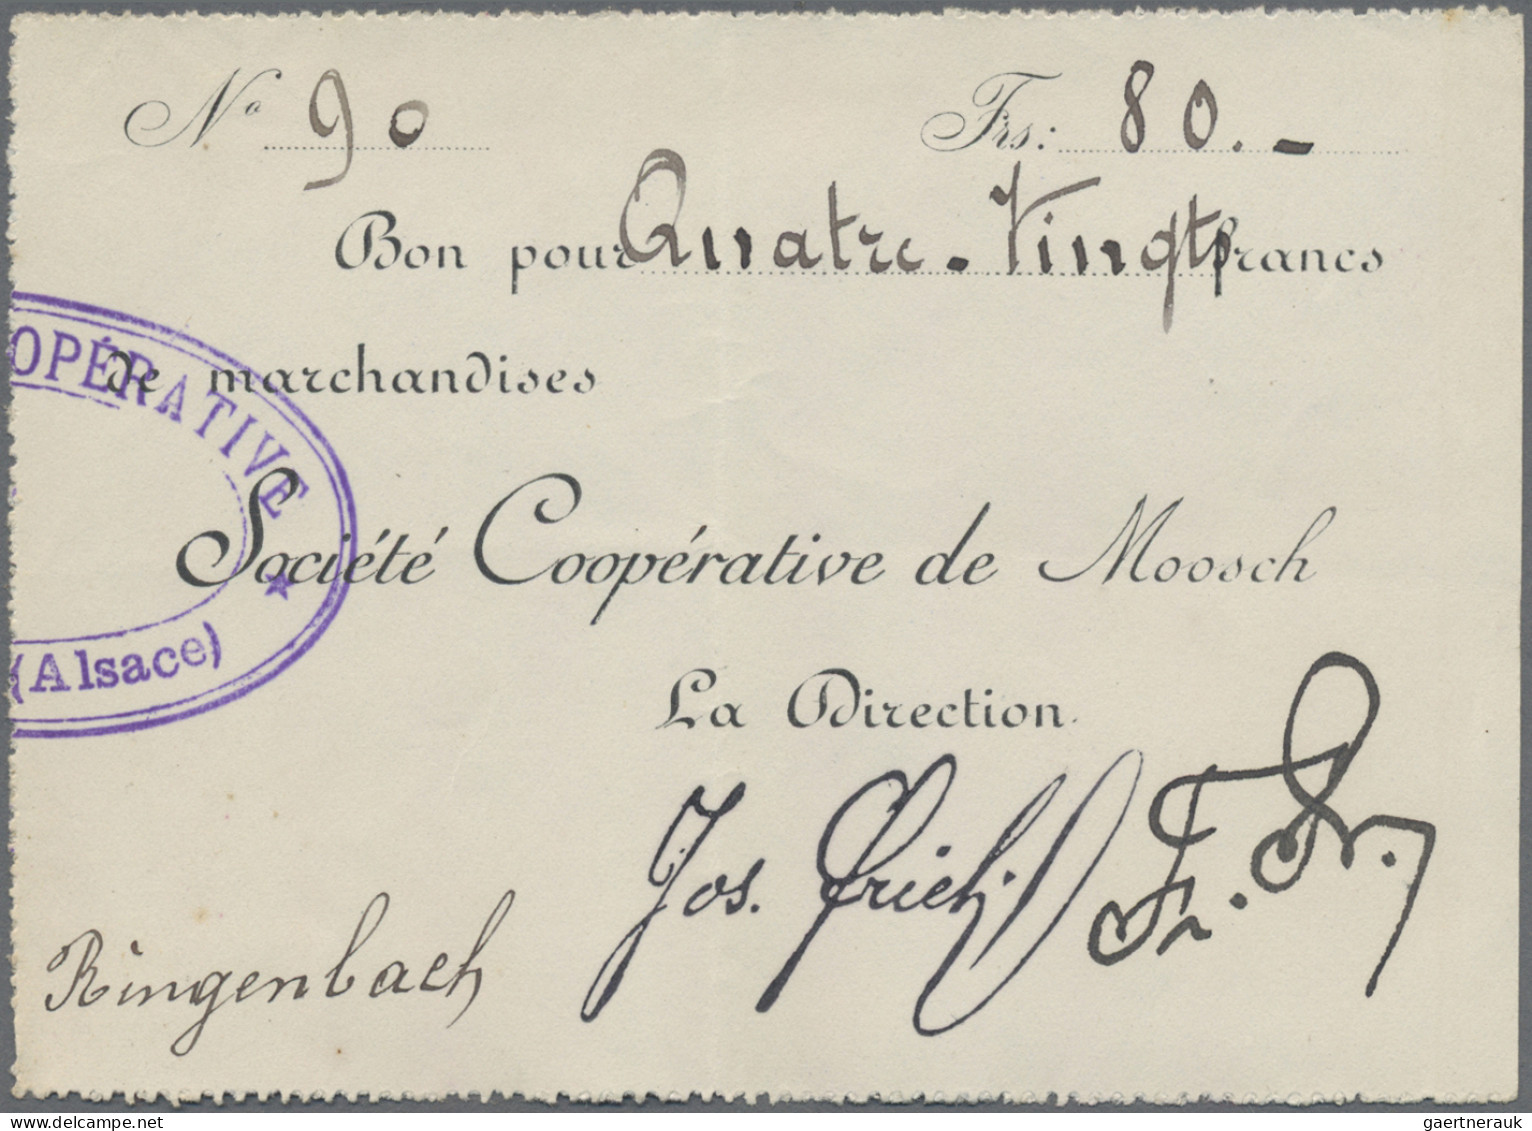 Nº 90 Frs: 80.-
Bon pour Quatre-Vingt francs
OPÉRATIVE
de marchandises
Société Coopérative de Moosch
(Alsace)
La Direction
Jos.
Ringenbach
gaertnerauk